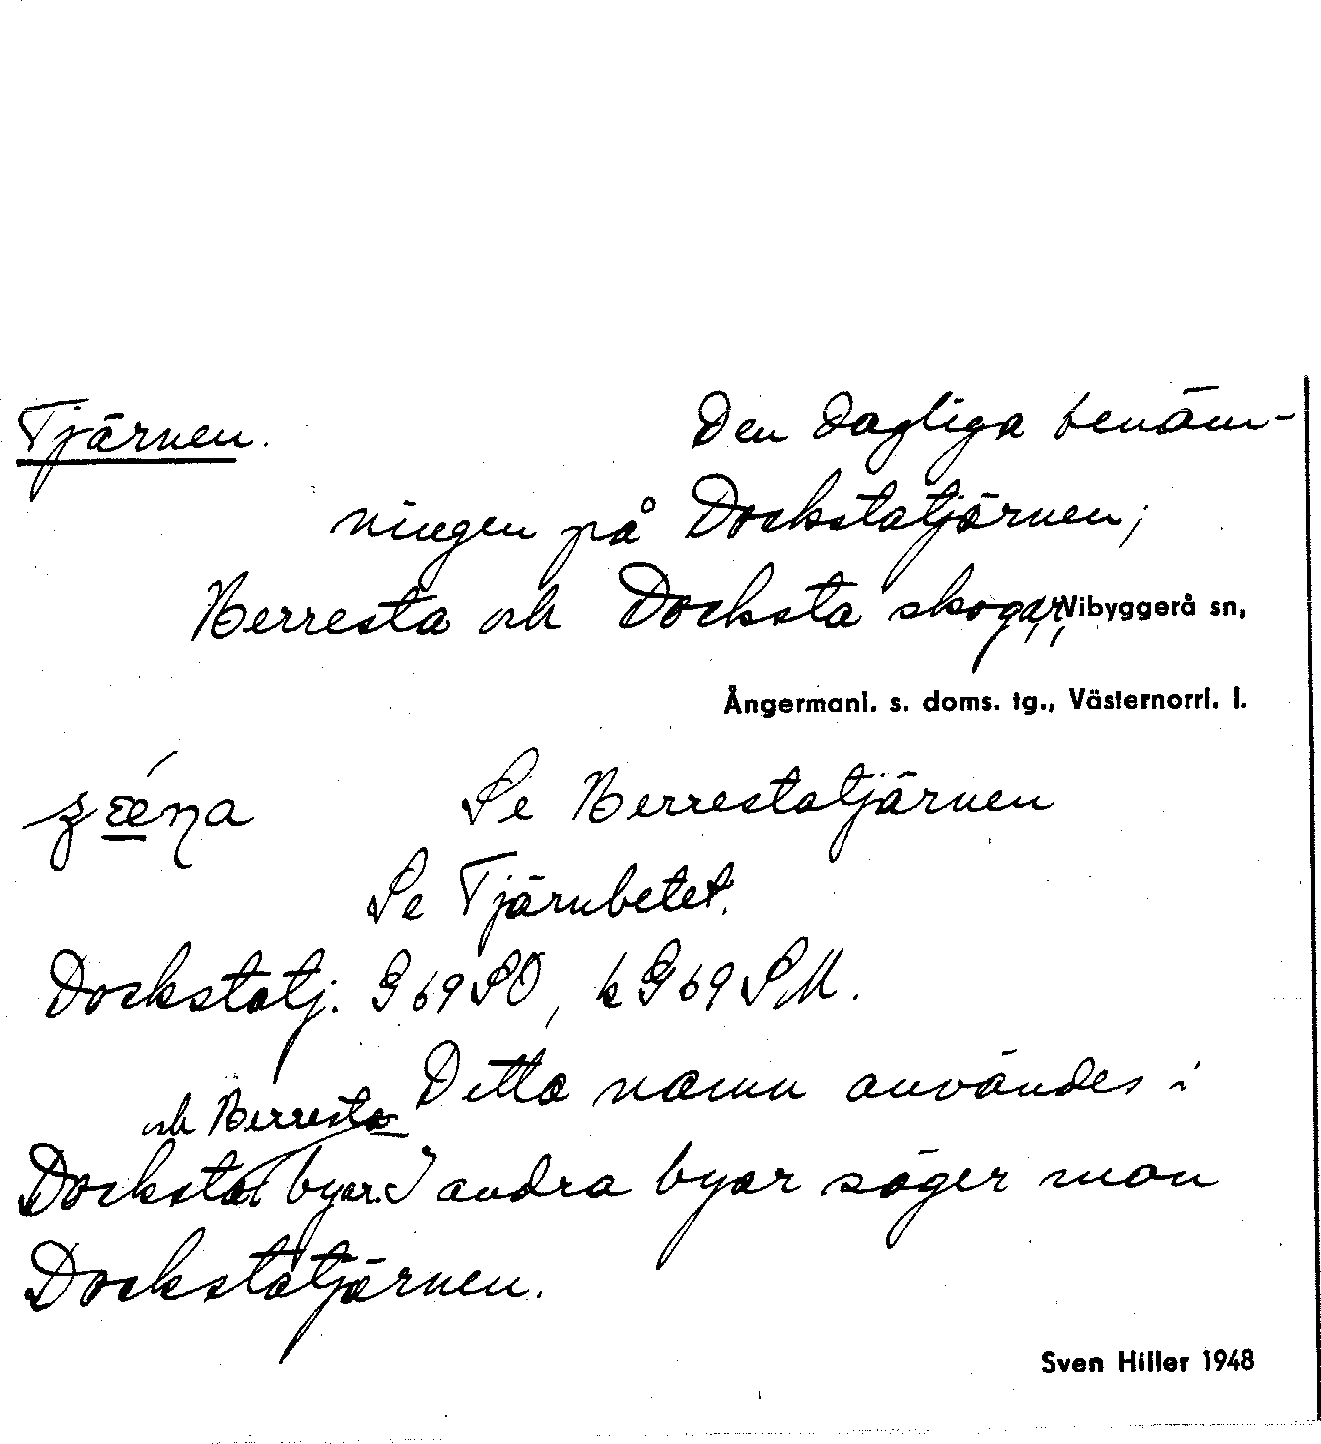 Tjärnen. Den dagliga benäm-
ningen på Dockstatjärnen;
Berresta och Docksta skogar, Vibyggerå sn,
Ångermanl. s. doms. tg., Västernorrl. l.
Se Berrestatjärnen
Se Tjärnbetet.
Dockstatj. G 69 SO, k G 69 SM.
Detta namn användes i
och Berresta
Docksta byar. I andra byar säger man
Dockstatjärnen.
Sven Hiller 1948